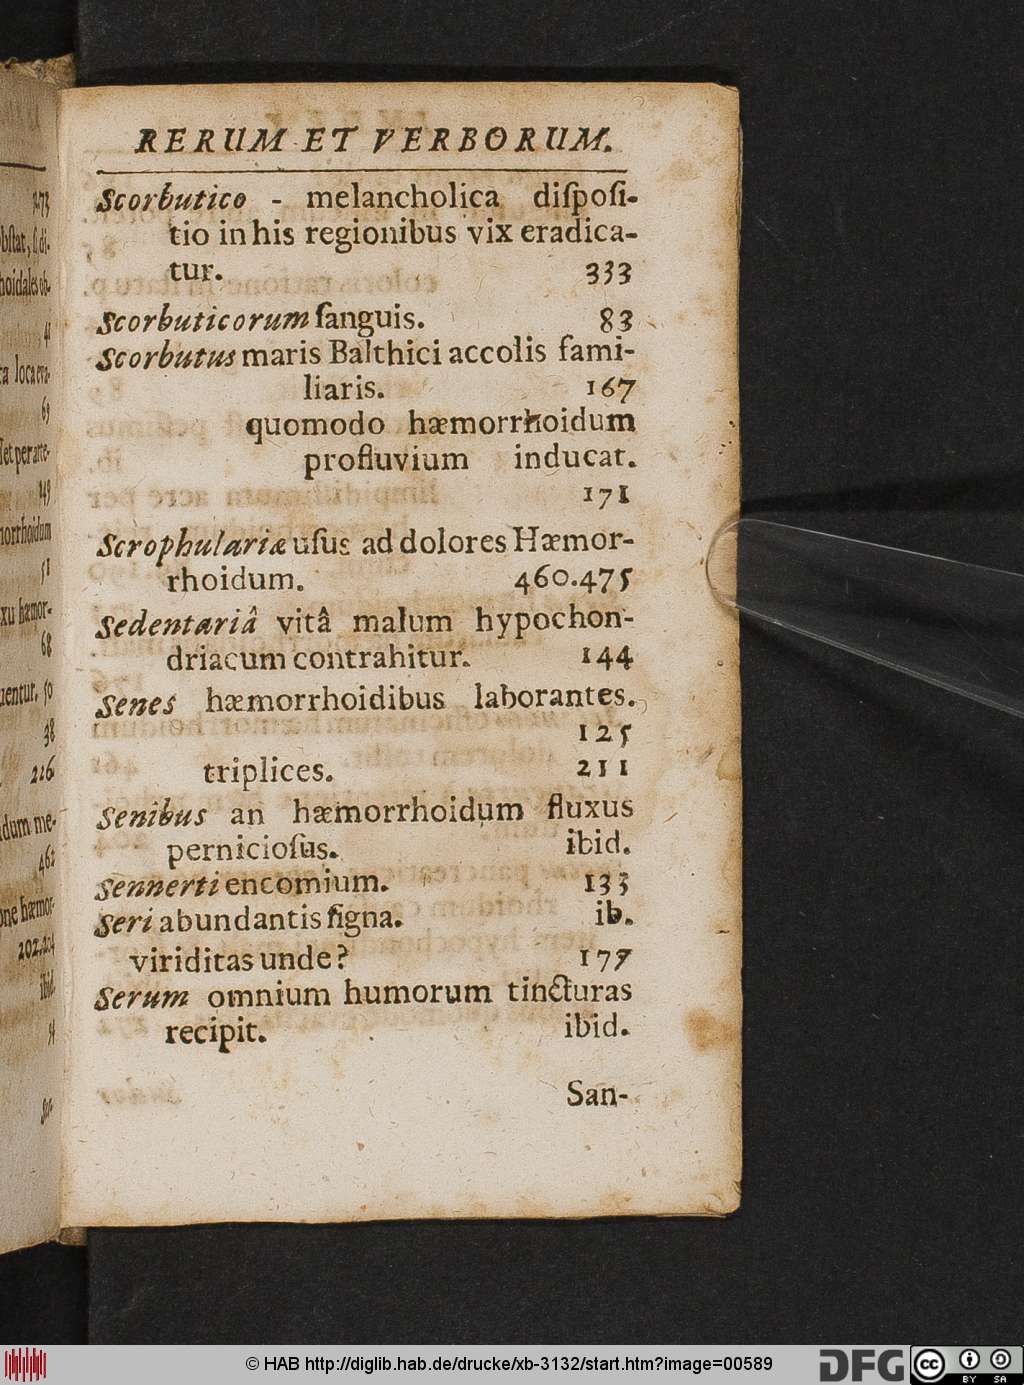 RERUM ET VERBORUM.
Scorbutico - melancholica diſpoſi-
tio in his regionibus vix eradica-
tur. 333
Scorbuticorum ſanguis. 83
Scorbutus maris Balthici accolis fami-
liaris. 167
quomodo hæmorrhoidum
profluvium inducat.
171
Scrophulariæ uſus ad dolores Hæmor-
rhoidum. 460.475
Sedentariâ vitâ malum hypochon-
driacum contrahitur. 144
Senes hæmorrhoidibus laborantes.
125
triplices. 211
Senibus an hæmorrhoidum fluxus
pernicioſus. ibid.
Sennerti encomium. 133
Seri abundantis ſigna. ib.
viriditas unde? 177
Serum omnium humorum tincturas
recipit. ibid.
San-
41
69
149
51
68
50
38
226
462
ibid.
© HAB http://diglib.hab.de/drucke/xb-3132/start.htm?image=00589
DFG
cc
BY SA